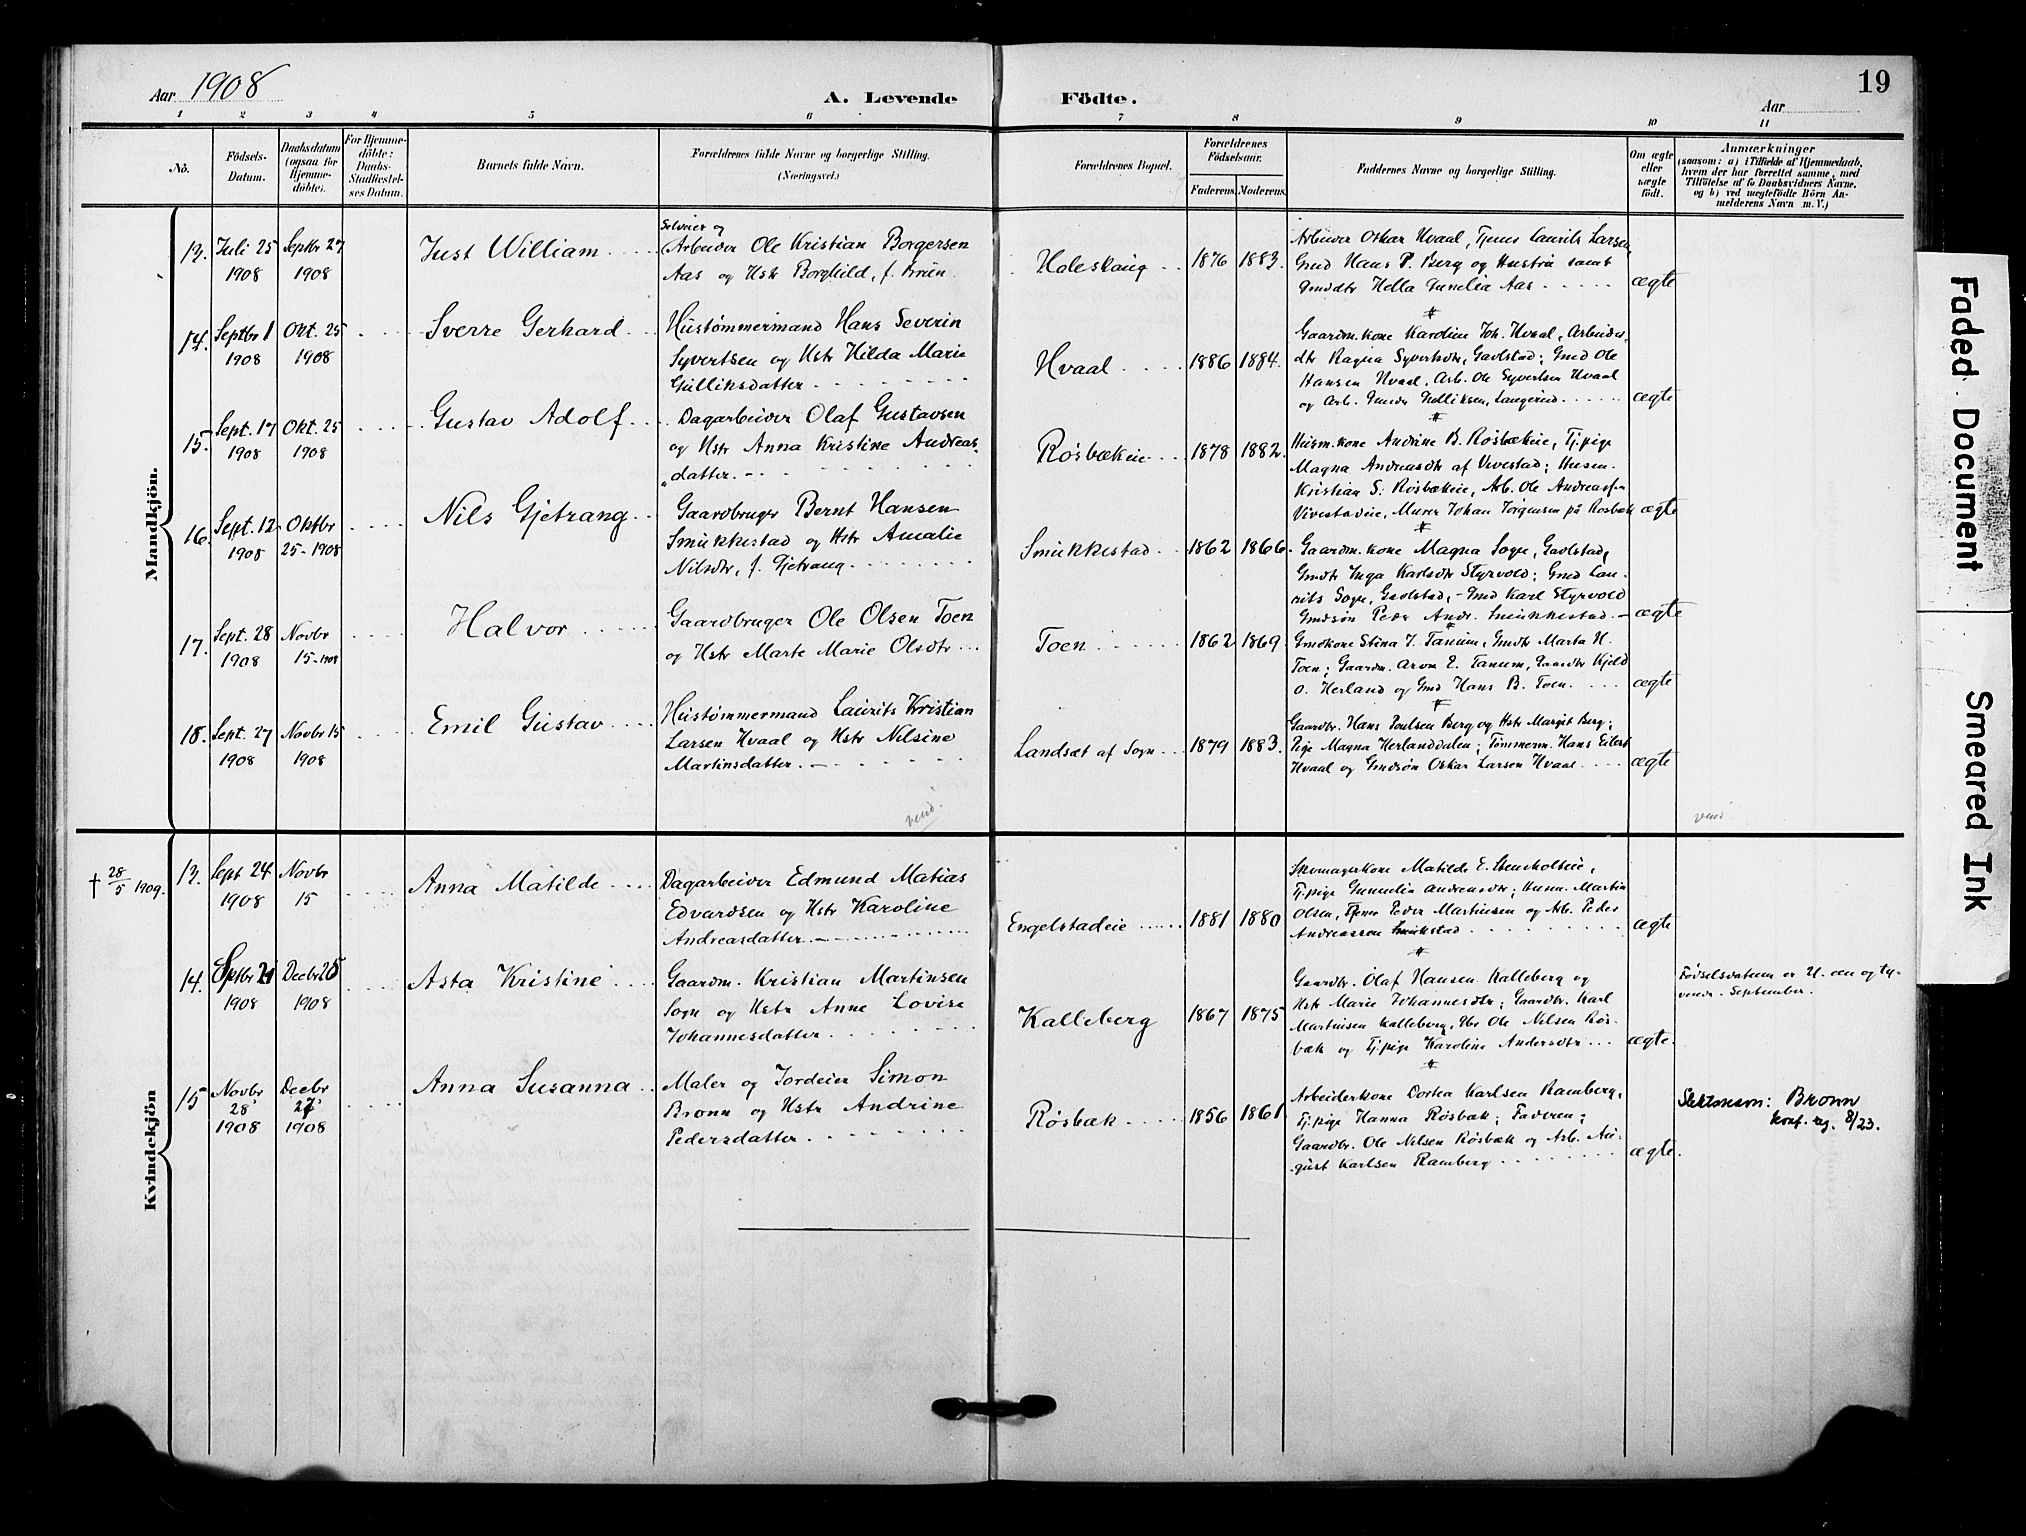 Aar 1908
A. Levende Födte.
19
Aar
1 2 3 4 5 6 7 8 9 10 11
No.
Födsels-
Datum.
Daabsdatum
(ogsaa for
Hjemme-
döbte).
For Hjemme-
döbte:
Daabs-
Stadfæstel-
ses Datum.
Barnets fulde Navn.
Forældrenes fulde Navne og borgerlige Stilling.
(Næringsvei.)
Forældrenes Bopæl.
Forældrenes
Födselsaar.
Faderens.
Moderens.
Faddernes Navne og borgerlige Stilling.
Om ægte
eller
uægte
födt.
Anmærkninger
(saasom: a) i Tilfælde af Hjemmedaab,
hvem der har forrettet samme, med
Tilföielse af to Daabsvidners Navne,
og b) ved uægtefödte Börn An-
melderens Navn m. V.)
Mandkjön.
13. Juli 25 1908
Septbr 27 1908
Just William
Selveier og
Arbeider Ole Kristian Borgersen
Aas og Hstr Borghild, f. Brün
Holeskaug
1876 1883.
Arbeider Oskar Hvaal, Tjener Laurits Larsen,
Gmd Hans P. Berg og Hustru samt
Gmdtr Hella Aas
ægte
14. Septbr 1 1908
Okt. 25 1908
Sverre Gerhard
Hustømmermand Hans Severin
Syvertsen og Hstr Hilda Marie
Gulliksdatter
Hvaal
1886 1884.
Gaardm.kone Karoline Joh. Hvaal, Arbeider-
dtr Ragna Syvertsdtr, Gavlstad; Gmd Ole
Hansen Hvaal, Arb. Ole Syvertsen Hvaal
og Arb. Gulliksen, Langerud
ægte
15. Sept. 17 1908
Okt. 25 1908
Gustav Adolf
Dagarbeider Olaf Gustavsen
og Hstr Anna Kristine Andreas-
datter.
Røsbækeie
1878 1882.
Husm.kone Andrine B. Røsbækeie, Tj.pige
Magna Andreasdtr af Vivestad; Husm.
Kristian S. Røsbækeie, Arb. Ole Andreassen
Vivestadeie, Murer Johan Jørgensen på Rosbæk
ægte
16. Sept. 12 1908
Oktbr 25 - 1908
Nils Gjetrang
Gaardbruger Bernt Hansen
Smukkestad og Hstr Amalie
Nilsdtr, f. Gjetrang
Smukkestad
1862 1866.
Gaardm.kone Magna Sogn, Gavlstad,
Gmdtr Inga Karlsdtr Styrvold; Gmd Lau-
rits Sogn, Gavlstad, - Gmd Karl Styrvold
Gmdsøn Peder Andr. Smukkestad
ægte
17. Sept. 28 1908
Novbr 15 - 1908
Halvor
Gaardbruger Ole Olsen Toen
og Hstr Marte Marie Olsdtr
Toen
1862 1869.
Gmdkone Stina J. Tanum, Gmdtr Marta H.
Toen; Gaardm. Aron E. Tanum, Gaardbr Kjeld
O. Herland og Gmd Hans B. Toen.
ægte
18. Sept. 27 1908
Novbr 15 1908
Emil Gustav
Hustømmermand Laurits Kristian
Larsen Hvaal og Hstr Nilsine
Martinsdatter.
Landsæt af Sogn
1879 1883.
Gaardbr. Hans Poulsen Berg og Hstr Margit Berg;
Pige Magna Herlanddalen; Tømmerm. Hans Eilert
Hvaal og Gmdsøn Oskar Larsen Hvaal
ægte
vend
vend
Kvindekjön
† 28/5 1909.
13. Sept 24 1908
Novbr 15
Anna Matilde
Dagarbeider Edmund Matias
Edvardsen og Hstr Karoline
Andreasdatter
Engelstadeie
1881 1880
Skomagerkone Matilde E. Stenholteie,
Tj.pige Gunnelia Andreasdtr; Husm. Martin
Olsen, Tjener Peder Martinsen og Arb. Peder
Andreassen
ægte
14. Septbr 21 1908
Decbr 25 1908
Asta Kristine
Gaardm. Kristian Martinsen
Sogn og Hstr Anne Lovise
Johannesdatter
Kalleberg
1867 1875
Gaardbr. Olaf Hansen Kalleberg og
Hstr Marie Johannesdtr; Gaardbr. Karl
Martinsen Kalleberg, gbr Ole Nilsen Røs-
bæk og Tj.pige Karoline Andersdtr
ægte.
Fødselsdatum er 21. een og ty-
vende. September.
15 Novbr 28 1908
Decbr 27 1908
Anna Susanna
Maler og Jordeier Simon
Bronn og Hstr Andrine
Pedersdatter
Røsbæk
1856 1861
Arbeiderkone Dortea Karlsen Ramberg,
Tj.pige Hanna Røsbæk; Faderen;
Gaardbr. Ole Nilsen Røsbæk og Arb. Au-
gust Karlsen Ramberg
ægte.
Slektsnavn: Bronn
konf. reg. 8/23.
Faded Document
Smeared Ink